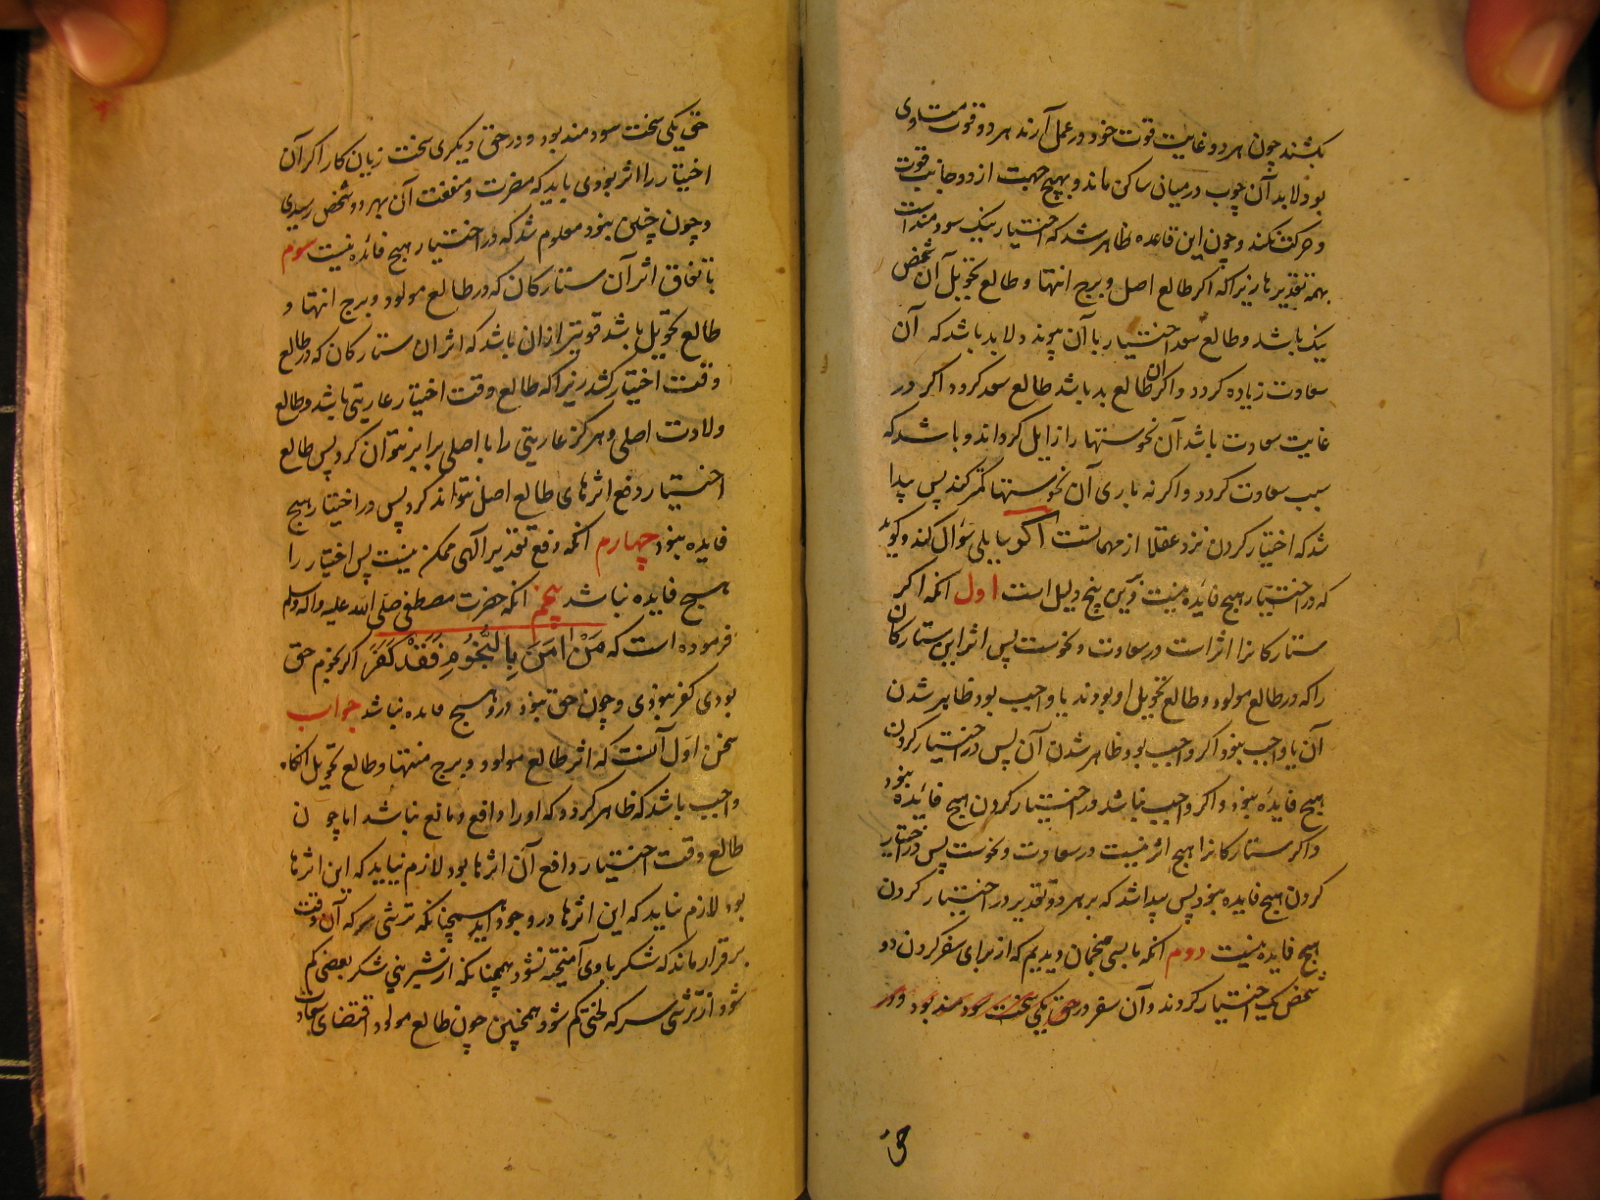 بکشند چون هر دو غایت قوت خود در عمل آرند هر دو قوت متساوی
بود لابد آن چوب در میان ساکن ماند و بهیچ جهت از دو جانب قوت
و حرکت نکند و چون این قاعده ظاهر شد که اختیار نیک سودمند است
بهمه تقدیرها زیرا که اکر طالع اصل و برج انتها و طالع تحویل آن شخص
نیک باشد و طالع سعد اختیار با آن پیوندد لابد باشد که آن
سعادت زیاده کردد و اکر ان طالع بد باشد طالع سعد کردد اکر در
غایت سعادت باشد آن نحوستها را زایل کرداند و باشد که
سبب سعادت کردد و اکر نه باری آن نحوستها کمتر کند پس پیدا
شد که اختیار کردن نزد عقلا از مهماتست اکر سایلی سؤال کند و کوید
که در اختیار هیچ فایده نیست و برین پنج دلیل است اول آنکه اکر
ستارکانرا اثر است در سعادت و نحوست پس اثر این ستارکان
را که در طالع مولود و طالع تحویل او بودند یا واجب بود ظاهر شدن
آن یا واجب نبود اکر واجب بود ظاهر شدن آن پس در اختیار کردن
هیچ فایده نبود و اکر واجب نباشد در اختیار کردن هیچ فایده نبود
و اکر ستارکانرا هیچ اثر نیست در سعادت و نحوست پس در اختیار
کردن هیچ فایده نبود پس پیدا شد که بر هر دو تقدیر در اختیار کردن
هیچ فایده نیست دوم آنکه ما بسی منجمان دیدیم که از برای سفر کردن دو
شخص یک اختیار کردند و آن سفر در حق یکی سخت سودمند بود و در
حق
حق یکی سخت سودمند بود و در حق دیکری سخت زیان کار اکر آن
اختیار را اثر بودی باید که مضرت و منفعت آن بهر دو شخص رسیدی
و چون چنین نبود معلوم شد که در اختیار هیچ فائده نیست سوم
باتفاق اثر آن ستارکان که در طالع مولود و برج انتها و
طالع تحویل باشد قویتر ازان باشد که اثر ان ستارکان که در طالع
وقت اختیار کشد زیرا که طالع وقت اختیار عاریتی باشد و طالع
ولادت اصلی و هرکز عاریتی را با اصلی برابر نتوان کرد پس طالع
اختیار دفع اثرهای طالع اصل نتواند کرد پس در اختیار هیچ
فایده نبود چهارم آنکه دفع تقدیر آلهی ممکن نیست پس اختیار را
هیچ فایده نباشد پنجم آنکه حضرت مصطفی صلی الله علیه و اله وسلم
فرموده است که مَنْ اٰمَنَ بِالنُّجُومِ فَقَدْ کَفَرَ اکر نجوم حق
بودی کفر نبودی و چون حق نبود درو هیچ فایده نباشد جواب
سخن اول آنست که اثر طالع مولود و برج منتها و طالع تحویل آنکاه
واجب باشد که ظاهر کردد که او را دافع و مانع نباشد اما چون
طالع وقت اختیار دافع آن اثرها بود لازم نیاید که این اثرها
بود لازم نیاید که این اثرها در وجود آید همچنانکه ترشی سرکه آن وقت
برقرار ماند که شکر با وی آمیخته نشود همچنانکه از شیرینی شکر بعضی کم
شود از ترشی سرکه لختی کم شود همچنین چون طالع مولود اقتضای سعادت